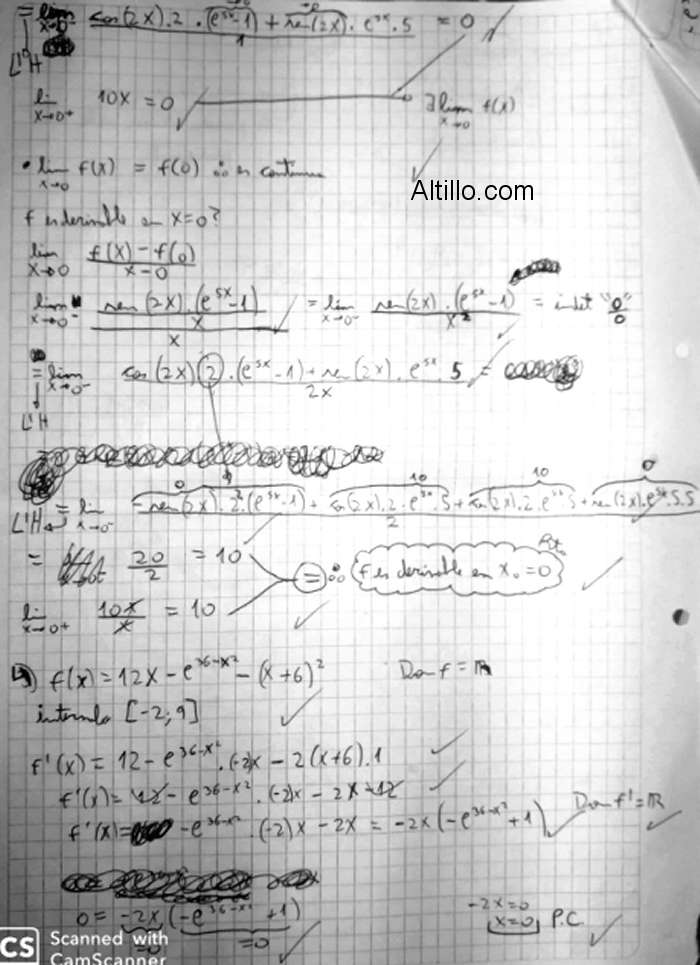 = lim x→0⁻ cos(2x).2.(e^5x-1) + sen(2x).e^5x.5 / 1 = 0
L'H
lim x→0+ 10x = 0 ∃ lim x→0 f(x)
• lim x→0 f(x) = f(0) ∴ es continua
Altillo.com
f es derivable en x=0?
lim x→0 f(x) - f(0) / x-0
lim x→0⁻ sen(2x).(e^5x-1) / x / x = lim x→0⁻ sen(2x).(e^5x-1) / x² = indet "0/0"
= lim x→0⁻ cos(2x) 2.(e^5x-1) + sen(2x).e^5x.5 / 2x =
L'H
0 10 10 0
L'H = lim x→0⁻ -sen(2x).2².(e^5x-1) + cos(2x).2.e^5x.5 + cos(2x).2.e^5x.5 + sen(2x).e^5x.5.5 / 2
= 20/2 = 10
= ∴ f es derivable en x₀=0 Rta
lim x→0+ 10x/x = 10
4) f(x) = 12x - e^36-x² - (x+6)² Dom f = ℝ
intervalo [-2;9]
f'(x) = 12 - e^36-x².(-2)x - 2(x+6).1
f'(x) = 12 - e^36-x².(-2)x - 2x - 12
f'(x) = -e^36-x².(-2)x - 2x = -2x(-e^36-x²+1) Dom f' = ℝ
0 = -2x(-e^36-x²+1) -2x=0
=0 =0 x=0 P.C.
CS Scanned with
CamScanner